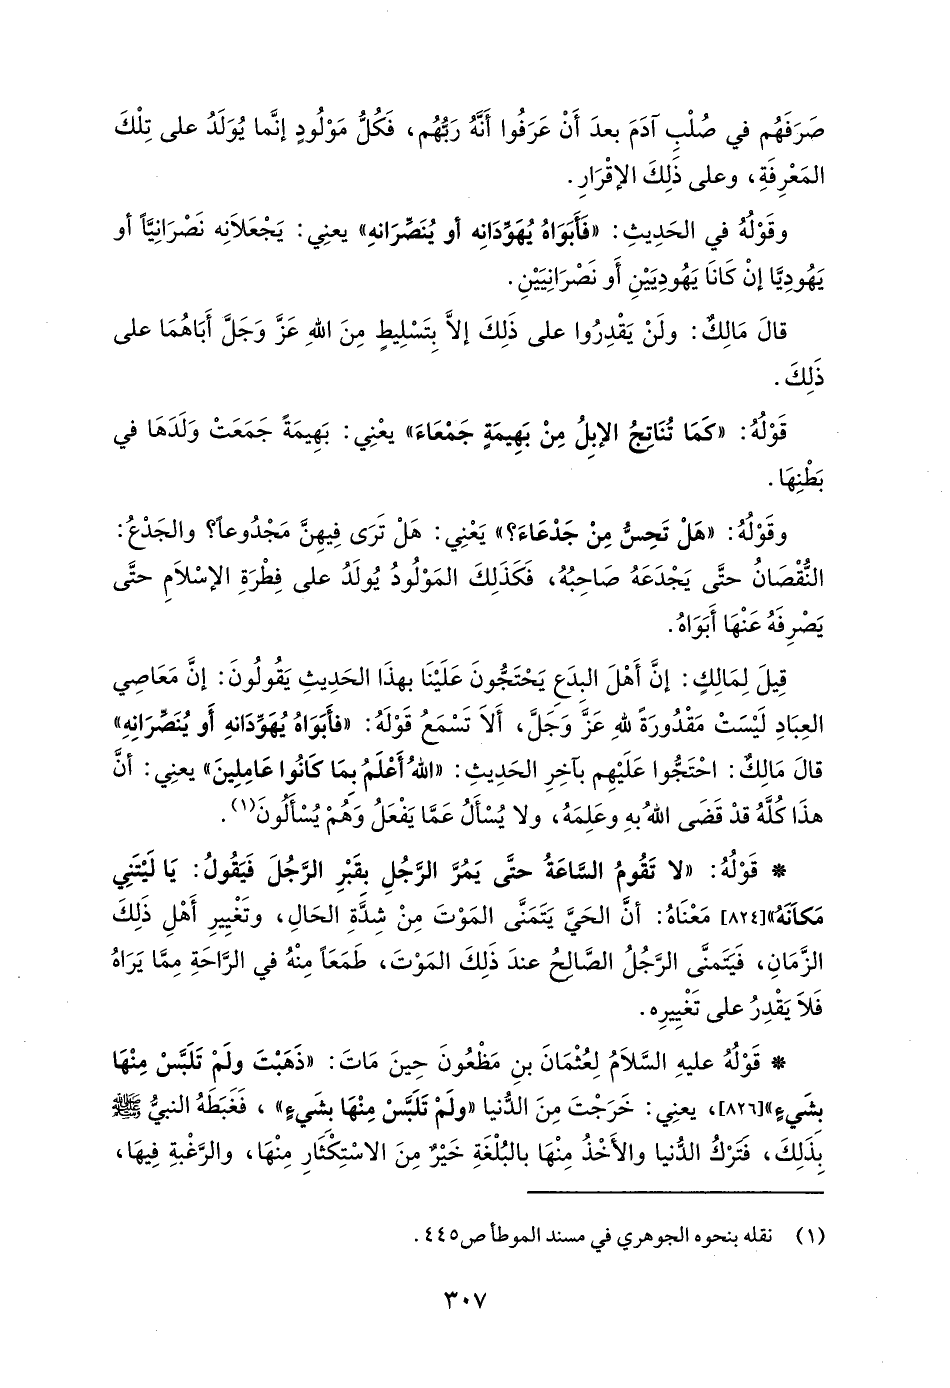 صَرَفَهُم في صُلْبِ آدَمَ بعدَ أَنْ عَرَفُوا أَنَّهُ رَبُّهُم، فَكُلُّ مَوْلُودٍ إنَّما يُوْلَدُ على تِلْكَ
المَعْرِفَةِ، وعلى ذَلِكَ الإقْرَارِ.
وقَوْلُهُ في الحَدِيثِ: «فَأَبَوَاهُ يُهَوِّدَانِه أو يُنَصِّرَانهِ» يعنِي: يَجْعَلاَنِه نَصْرَانِيَّاً أو
يَهُودِيَّا إنْ كَانَا يَهُودِيَيْنِ أَو نَصْرَانِيَيْنِ.
قالَ مَالِكٌ: ولَنْ يَقْدِرُوا على ذَلِكَ إلاَّ بِتَسْلِيطٍ مِنَ اللهِ عَزَّ وَجَلَّ أَبَاهُمَا على
ذَلِكَ.
قَوْلُهُ: «كَمَا تُنَاتِجُ الإبِلُ مِنْ بَهِيمَةٍ جَمْعَاءَ» يعْنِي: بَهِيمَةً جَمَعَتْ وَلَدَهَا في
بَطْنِهَا.
وقَوْلُهُ: «هَلْ تَحِسُّ مِنْ جَدْعَاءَ؟» يَعْنِي: هَلْ تَرَى فِيهِنَّ مَجْدُوعاً؟ والجَدْعُ:
النُّقْصَانُ حتَّى يَجْدَعَهُ صَاحِبُهُ، فَكَذَلِكَ المَوْلُودُ يُولَدُ على فِطْرَةِ الإسْلاَمِ حتَّى
يَصْرِفَهُ عَنْهَا أَبَوَاهُ.
قِيلَ لِمَالِكٍ: إنَّ أَهْلَ البِدَعِ يَحْتَجُّونَ عَلَيْنَا بهذَا الحَدِيثِ يَقُولُونَ: إنَّ مَعَاصِي
العِبَادِ لَيْسَتْ مَقْدُورَةً للهِ عَزَّ وَجَلَّ، أَلاَ تَسْمَعُ قَوْلَهُ: «فأَبَوَاهُ يُهَوِّدَانهِ أو يُنَصِّرَانِهِ»
قالَ مَالِكٌ: احْتَجُّوا عَلَيْهِم بآخِرِ الحَدِيثِ: «اللهُ أَعْلَمُ بِمَا كَانُوا عَامِلِينَ» يعنِي: أنَّ
هذَا كُلَّهُ قدْ قَضَى اللهُ بهِ وعَلِمَهُ، ولا يُسْأَلُ عَمَّا يَفْعَلُ وَهُمْ يُسْأَلُونَ(١).
* قَوْلُهُ: «لا تَقُومُ السَّاعَةُ حتَّى يَمُرَّ الرَّجُلِ بِقَبْرِ الرَّجُلَ فَيَقُولُ: يَا لَيْتَنِي
مَكَانَهُ»[٨٢٤] مَعْنَاهُ: أنَّ الحَيَّ يَتَمَنَّى المَوْتَ مِنْ شِدَّةِ الحَالِ، وتَغْيِيرِ أَهْلِ ذَلِكَ
الزَّمَانِ، فَيَتَمنَّى الرَّجُلُ الصَّالِحُ عندَ ذَلِكَ المَوْتَ، طَمَعَاً مِنْهُ في الرَّاحَةِ مِمَّا يَرَاهُ
فَلاَ يَقْدِرُ على تَغْيِيرِه.
* قَوْلُهُ عليهِ السَّلاَمُ لِعُثْمَانَ بنِ مَظْعُونَ حِينَ مَاتَ: «ذَهَبْتَ ولَمْ تَلَبَّسْ مِنْهَا
بِشَيءٍ»[٨٢٦]، يعنِي: خَرَجْتَ مِنَ الدُّنيا «ولَمْ تَلَبَّسْ مِنْهَا بِشَيءٍ» ، فَغَبَطَهُ النبيُّ ﷺ
بِذَلِكَ، فَتَرْكُ الدُّنيا والأَخْذُ مِنْهَا بالبُلْغَةِ خَيْرٌ مِنَ الاسْتِكْثَارِ مِنْهَا، والرَّغْبةِ فِيهَا،
(١) نقله بنحوه الجوهري في مسند الموطأ ص٤٤٥.
٣٠٧